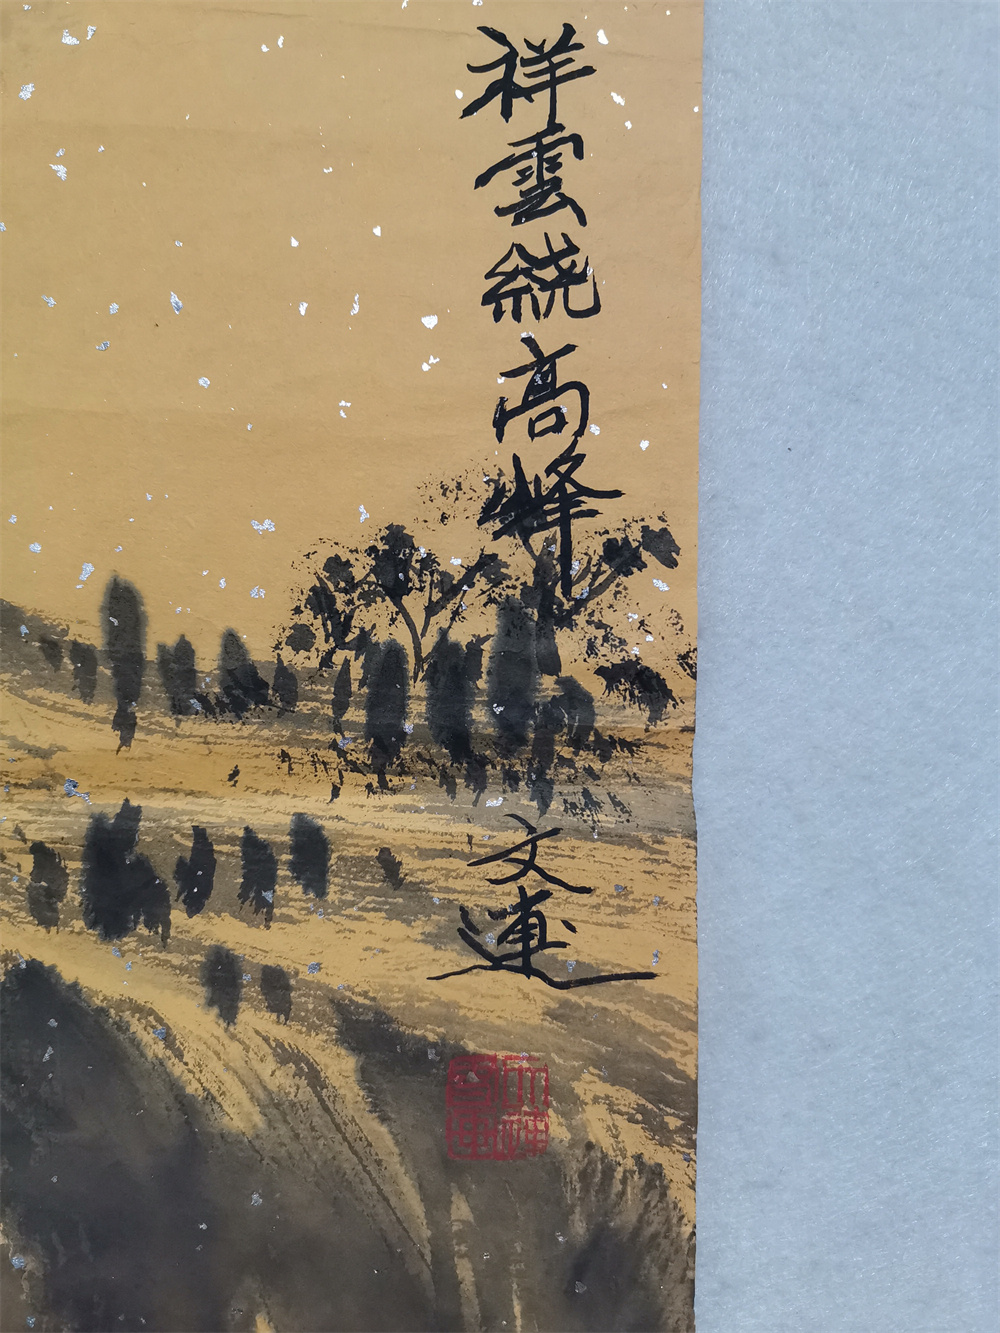 祥雲繞高峰
文蓮